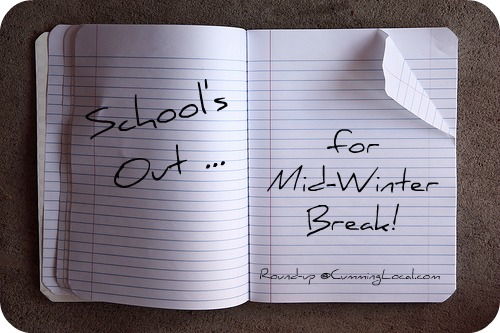 School's
Out ...
for
Mid-Winter
Break!
Round-up @CummingLocal.com